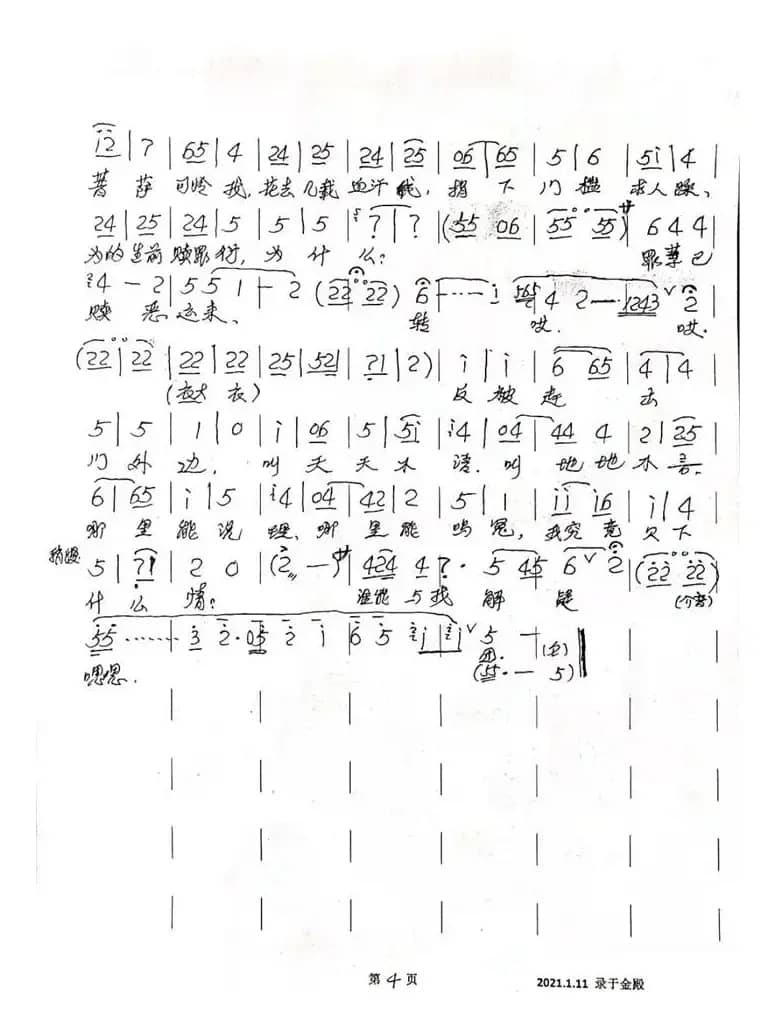 i2 | 7 | 65 | 4 | 24 | 25 | 24 | 25 | 06 | 65 | 5 | 6 | 5i | 4 |
菩萨可怜我,花去几载血汗钱,捐下门槛求人踩、
24 | 25 | 24 | 5 | 5 | 5 | 7 | 7 | (55 06 | 55 55) 6 4 4
为的是前赎罪衍,为什么? 罪孽已
4 – 2 | 5 5 1 | – 2 (22 22) 6 | ---- i 565 4 2 –– 1243 ∨ 2
赎恶运来、 转 哎. 哎.
(22 | 22 | 22 | 22 | 25 | 52 | 71 | 2) | i | i | 6 65 | 4 | 4
反被赶去
5 | 5 | 1 | 0 | i | 06 | 5 | 5i | 4 | 04 | 44 4 | 2 | 25
门外边,叫天天不语.叫地地不言.
6 | 65 | i | 5 | 4 | 04 | 42 | 2 | 5 | 1 | ii | i6 | i | 4
哪里能说理、哪里能鸣冤,我究竟欠下
稍慢 5 | 71 | 2 0 | (2 –) 424 4 7· 5 45 6 ∨ 2 | (22 22)
什么情? 谁能与我解疑
55 ········ 3 2·05 2 i 6 5 i i ∨ 5 –
嗯嗯. 团.
(55·– 5)
第 4 页
2021.1.11 录于金殿